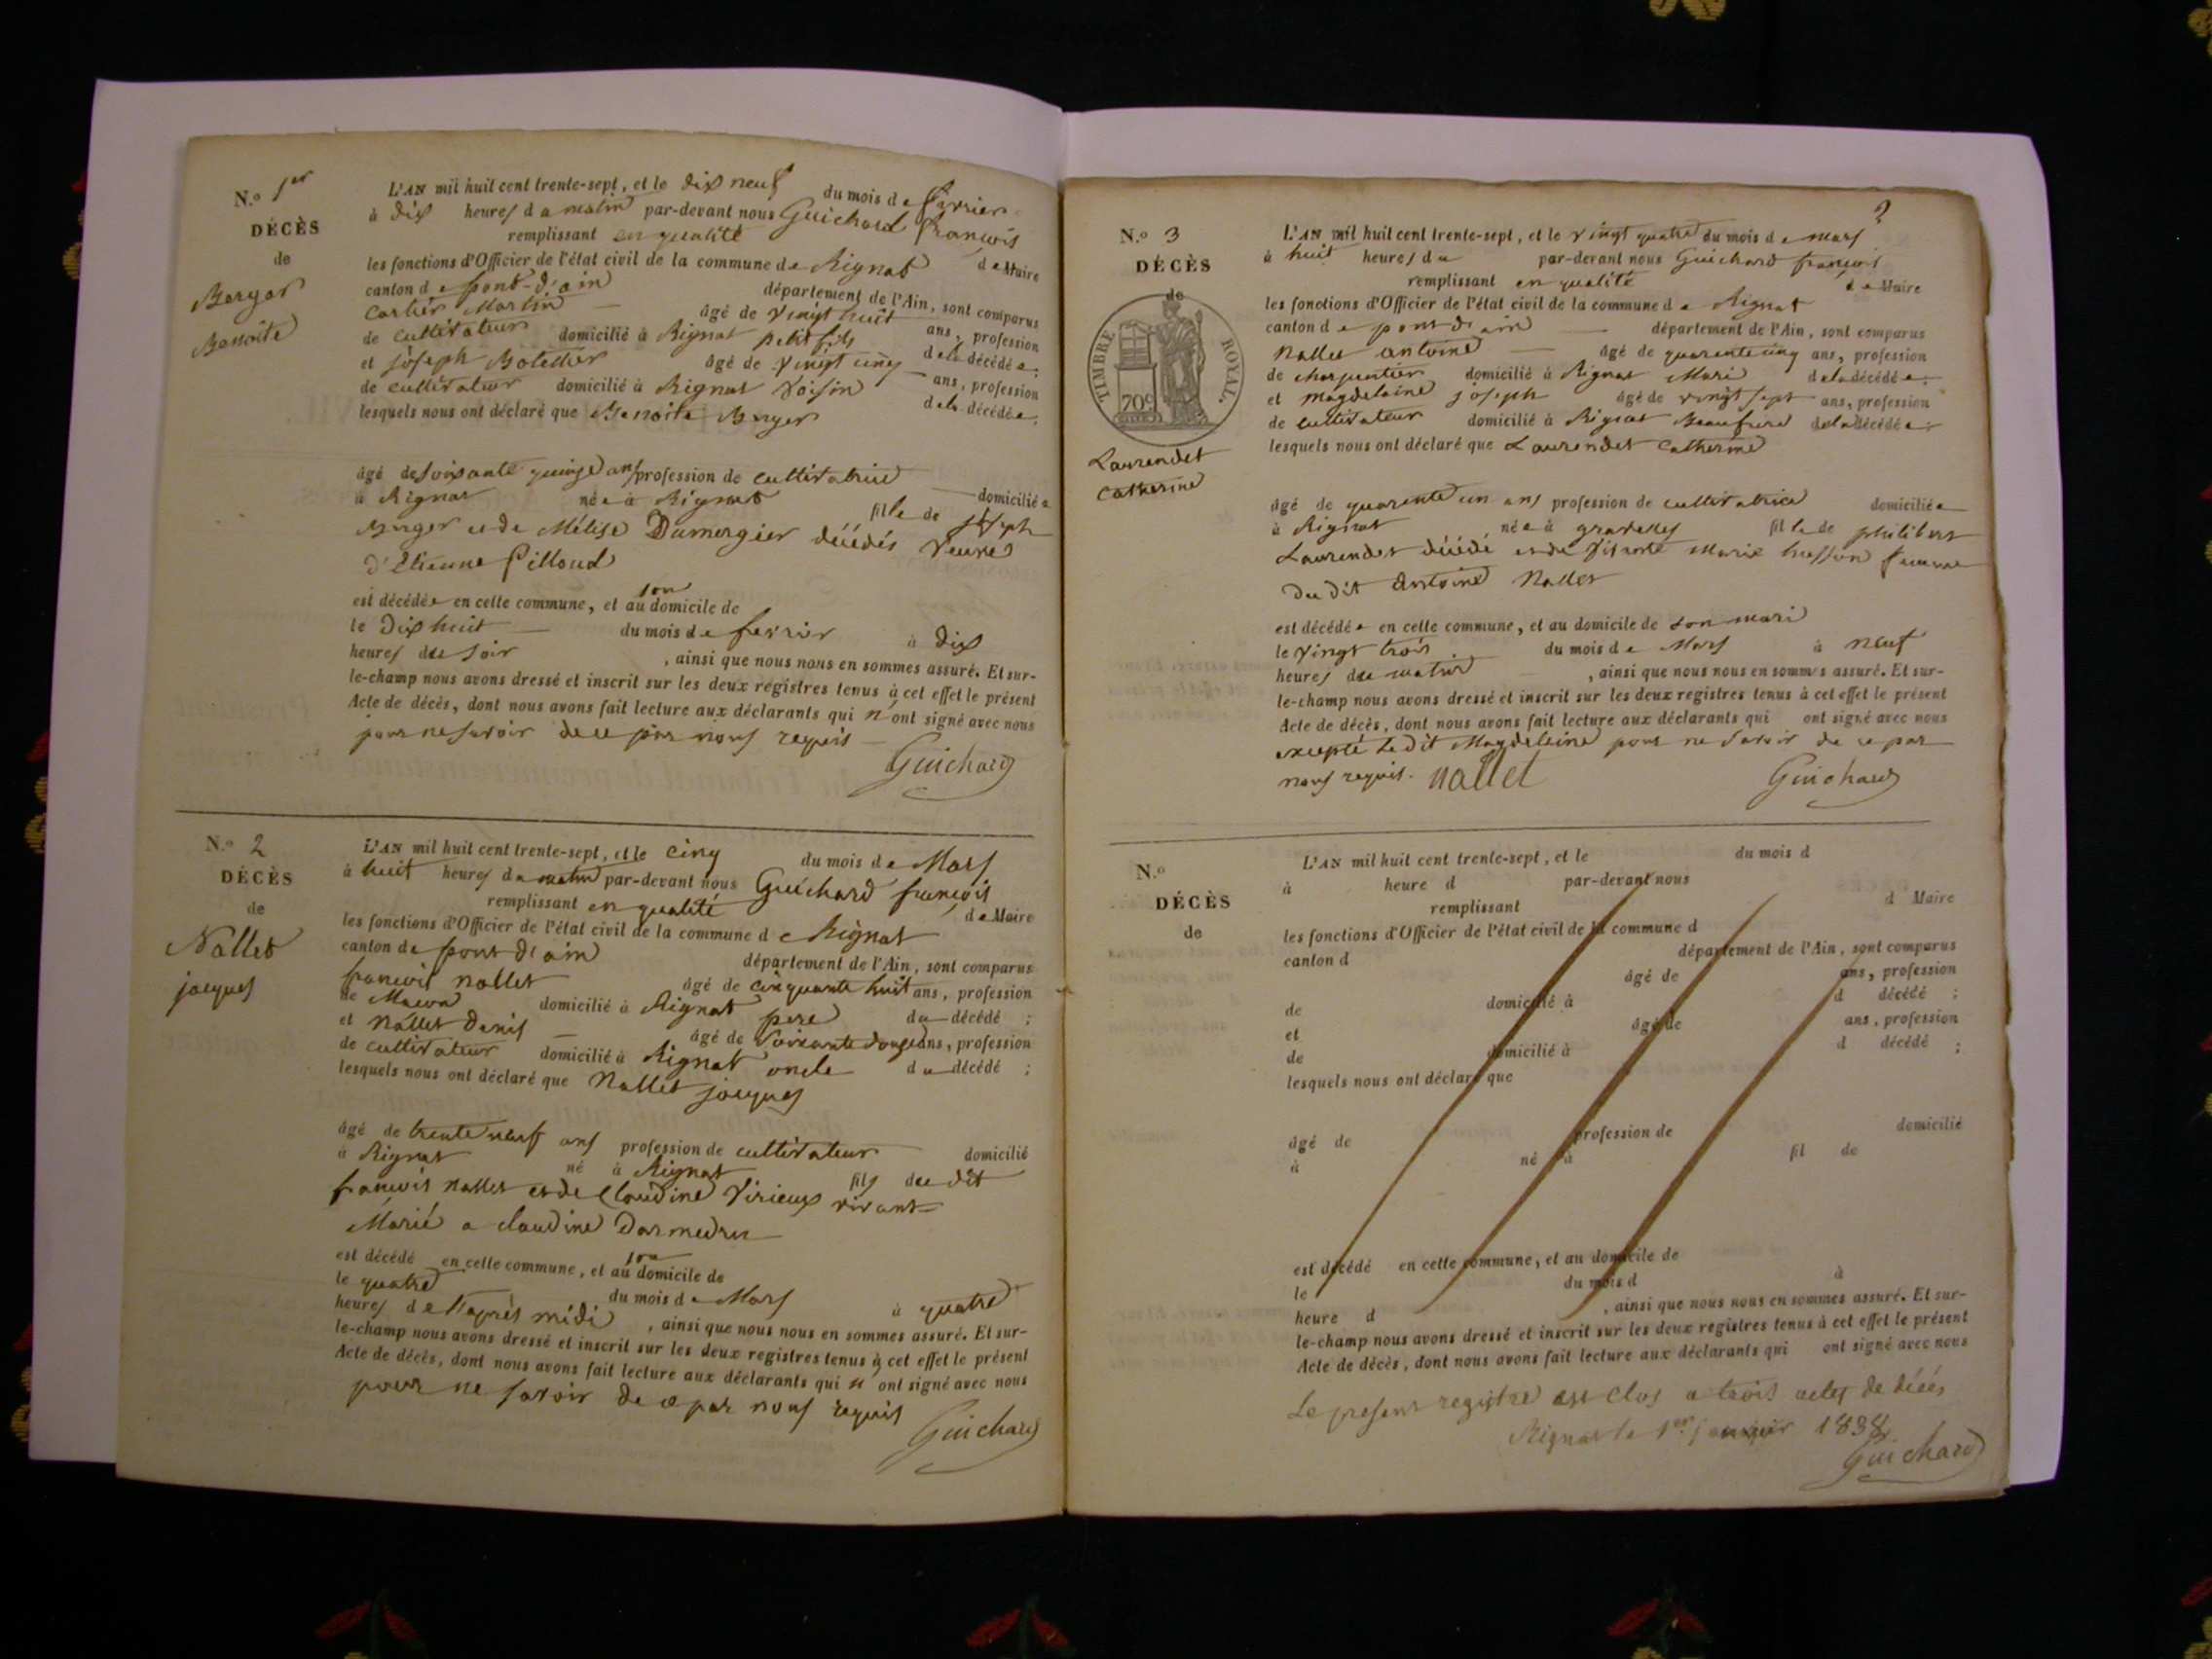 N.º 1er
DÉCÈS
de
Berger
Benoîte
L'AN mil huit cent trente-sept, et le dix neuf du mois de fevrier
à dix heures du matin par-devant nous Guichard françois
remplissant en qualité de Maire
les fonctions d'Officier de l'état civil de la commune de Rignat
canton de pont-d'ain département de l'Ain, sont comparus
Cartier Martin âgé de vingt huit ans, profession
de cultivateur domicilié à Rignat petit fils de la décédée;
et joseph âgé de vingt cinq ans, profession
de cultivateur domicilié à Rignat voisin de la décédée;
lesquels nous ont déclaré que Benoite Berger
âgé de soixante quinze ans profession de cultivatrice domiciliée
à Rignat née à Rignat fille de joseph
Berger et de Dumergier décédés veuve
d'Etienne Pilloud
est décédée en cette commune, et au son domicile de
le dix huit du mois de fevrier à dix
heures du soir, ainsi que nous nous en sommes assuré. Et sur-
le-champ nous avons dressé et inscrit sur les deux registres tenus à cet effet le présent
Acte de décès, dont nous avons fait lecture aux déclarants qui n'ont signé avec nous
pour ne savoir de ce par nous requis
Guichard
N.º 2
DÉCÈS
de
Nallet
jacques
L'AN mil huit cent trente-sept, et le cinq du mois de Mars
à huit heures du matin par-devant nous Guichard françois
remplissant en qualité de Maire
les fonctions d'Officier de l'état civil de la commune de Rignat
canton de pont d'ain département de l'Ain, sont comparus
françois nallet âgé de cinquante huit ans, profession
de Maçon domicilié à Rignat pere du décédé;
et Nallet denis âgé de soixante douze ans, profession
de cultivateur domicilié à Rignat oncle du décédé;
lesquels nous ont déclaré que Nallet jacques
âgé de trente neuf ans profession de cultivateur domicilié
à Rignat né à Rignat fils du dit
françois nallet et de Claudine Virieux vivants
Marié a claudine
est décédé en cette commune, et au son domicile de
le quatre du mois de Mars à quatre
heures de l'après midi, ainsi que nous nous en sommes assuré. Et sur-
le-champ nous avons dressé et inscrit sur les deux registres tenus à cet effet le présent
Acte de décès, dont nous avons fait lecture aux déclarants qui n'ont signé avec nous
pour ne savoir de ce par nous requis
Guichard
2
N.º 3
DÉCÈS
de
TIMBRE ROYAL.
70c
Laurendet
Catherine
L'AN mil huit cent trente-sept, et le vingt quatre du mois de mars
à huit heures du par-devant nous Guichard françois
remplissant en qualité de Maire
les fonctions d'Officier de l'état civil de la commune de Rignat
canton de pont d'ain département de l'Ain, sont comparus
Nallet antoine âgé de quarente cinq ans, profession
de charpentier domicilié à Rignat Mari de la décédée;
et magdelaine joseph âgé de vingt sept ans, profession
de cultivateur domicilié à Rignat Beaufrere de la décédée;
lesquels nous ont déclaré que Laurendet Catherine
âgé de quarente un ans profession de cultivatrice domiciliée
à Rignat née à gravelles fille de philibert
Laurendet décédé et de vivante Marie femme
du dit antoine Nallet
est décédée en cette commune, et au domicile de son mari
le vingt trois du mois de Mars à neuf
heures du matin, ainsi que nous nous en sommes assuré. Et sur-
le-champ nous avons dressé et inscrit sur les deux registres tenus à cet effet le présent
Acte de décès, dont nous avons fait lecture aux déclarants qui ont signé avec nous
excepté le dit Magdeleine pour ne savoir de ce par
nous requis. nallet Guichard
N.º
DÉCÈS
de
L'AN mil huit cent trente-sept, et le du mois d
à heure d par-devant nous
remplissant d Maire
les fonctions d'Officier de l'état civil de la commune d
canton d département de l'Ain, sont comparus
âgé de ans, profession
de domicilié à d décédé;
et âgé de ans, profession
de domicilié à d décédé;
lesquels nous ont déclaré que
âgé de profession de domicilié
à né à fil de
est décédé en cette commune, et au domicile de
le du mois d à
heure d, ainsi que nous nous en sommes assuré. Et sur-
le-champ nous avons dressé et inscrit sur les deux registres tenus à cet effet le présent
Acte de décès, dont nous avons fait lecture aux déclarants qui ont signé avec nous
Le present registre est clos a trois actes de décés
Rignat le 1er janvier 1838
Guichard